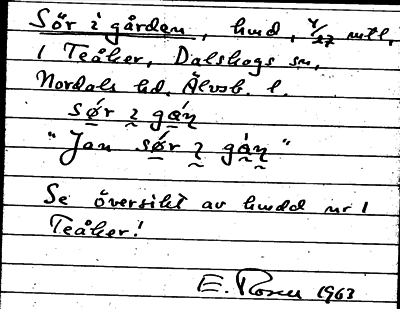 Sör i gården, hmd, 4/27 mtl,
1 Teåker, Dalskogs sn,
Nordals hd. Älvsb. l.
sø̀r ɩ gá̀ɳ
"Jan sø̀r ɩ gá̀ɳ"
Se översikt av hmdd nr 1
Teåker!
E. Rosen 1963